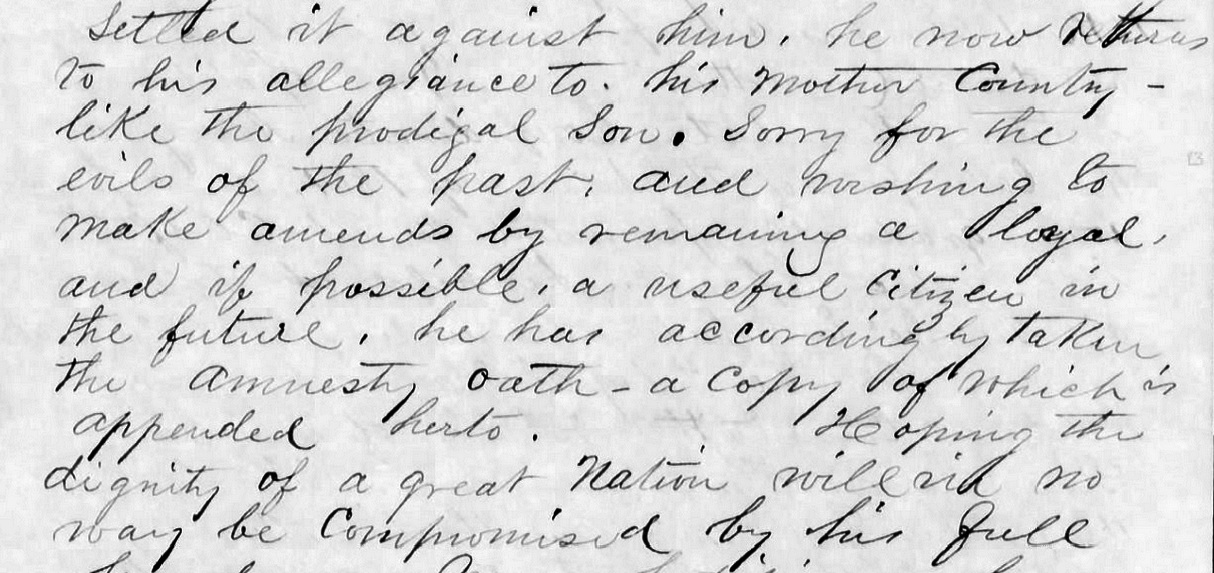 Settled it against him, he now returns
to his allegiance to. his Mother County -
like the prodigal Son. Sorry for the
evils of the past, and wishing to
make amends by remaining a loyal,
and if possible, a useful Citizen in
the future, he has accordingly taken
the amnesty oath - a Copy of which is
appended herto. Hoping the
dignity of a great Nation will in no
way be Compromised by his full